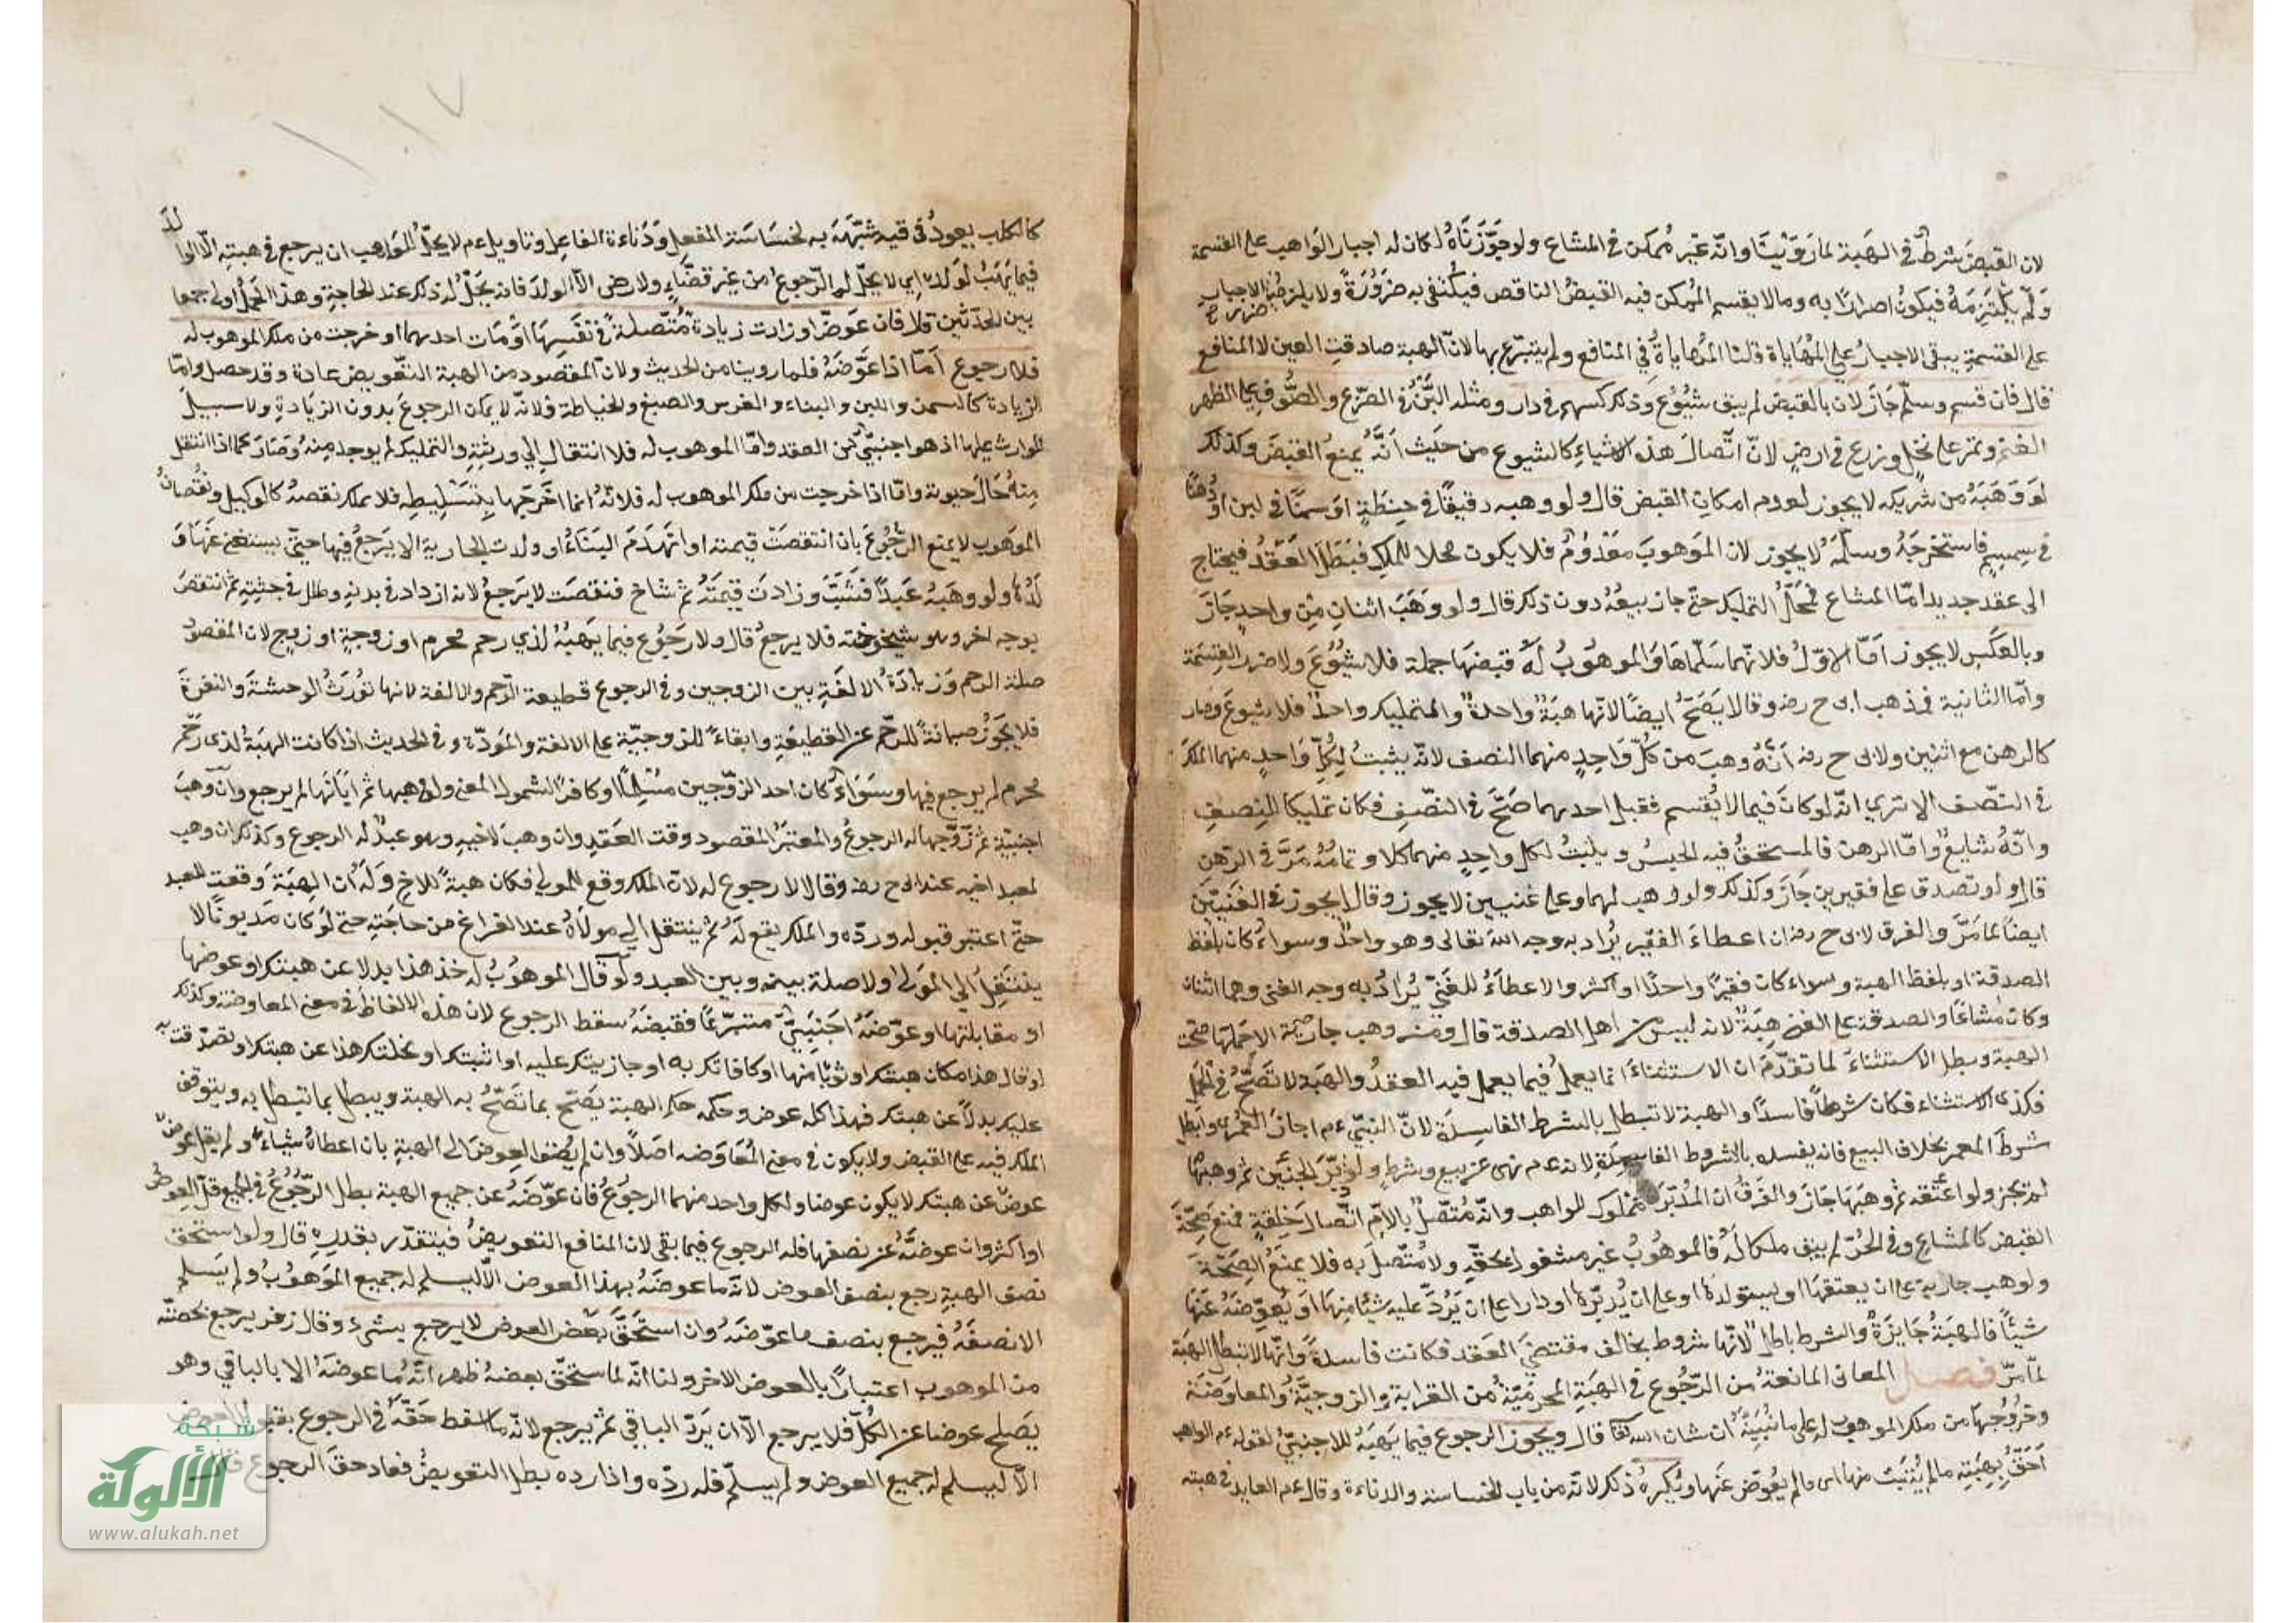 لان القبض شرط في الهبة لما روينا وانه غير ممكن في المشاع ولو جوزناه لكان له اجبار الواهب على القسمة
ولم يلتزمه فيكون اضرارًا به وما لا يقسم الممكن فيه القبض الناقص فيكتفى به ضرورة ولا يلزم الاجبار
على القسمة يبقى الاجبار على المهاياة قلنا المهاياة في المنافع ولم يتبرع بها لان الهبة صادفت العين لا المنافع
قال فان قسم وسلم جاز لان بالقبض لم يبق شيوع وذلك كسهم في دار ومثله اللبن في الضرع والصوف على الظهر
الغنم وتمر على نخل وزرع في ارض لان اتصال هذه الاشياء كالشيوع من حيث انه يمنع القبض وكذلك
لو وهبه من شريكه لا يجوز لعدم امكان القبض قال ولو وهبه دقيقًا في حنطة او سمنًا في لبن او دهنًا
في سمسم فاستخرجه وسلمه لا يجوز لان الموهوب معدوم فلا يكون محلا للملك فبطل العقد فيحتاج
الى عقد جديد اما المشاع محل التمليك حتى جاز بيعه دون ذلك قال ولو وهب اثنان من واحد جاز
وبالعكس لا يجوز اما الاول فلانهما سلماها والموهوب له قبضها جملة فلا شيوع ولا ضرر القسمة
واما الثانية فمذهب ابى ح رضه وقالا يصح ايضًا لانها هبة واحدة والتمليك واحد فلا شيوع وصار
كالرهن مع اثنين ولابى ح رضه انه وهب من كل واحد منهما النصف لانه يثبت لكل واحد منهما الملك
في النصف الا ترى انه لو كان فيما لا يقسم فقبل احدهما صح في النصف فكان تمليكا للنصف
وانه شايع واما الرهن فالمستحق فيه الحبس ويثبت لكل واحد منهما كلا وتمامه مر في الرهن
قال ولو تصدق على فقيرين جاز وكذلك لو وهب لهما وعلى غنيين لا يجوز وقالا يجوز في الغنيين
ايضًا لما مر والفرق لابى ح رضه ان اعطاء الفقير يراد به وجه الله تعالى وهو واحد وسواء كان بلفظ
الصدقة او بلفظ الهبة وسواء كان فقيرًا واحدًا او اكثر والاعطاء للغني يراد به وجه الغنى وهما اثنان
وكان مشاعًا والصدقة على الغنى هبة لانه ليس من اهل الصدقة قال ومن وهب جارية الا حملها صحت
الهبة وبطل الاستثناء لما تقدم ان الاستثناء انما يعمل فيما يعمل فيه العقد والهبة لا تصح في الحمل
فكذى الاستثناء فكان شرطًا فاسدًا والهبة لا تبطل بالشرط الفاسدة لان النبي عم اجاز العمرى وابطل
شرط المعمر بخلاف البيع فانه يفسده بالشروط الفاسدة لانه عم نهى عن بيع وشرط ولو دبر الجنين ثم وهبها
لم تجز ولو اعتقه ثم وهبها جاز والفرق ان المدبر مملوك للواهب وانه متصل بالام اتصال خلقة فمنع صحة
القبض كالمشاع وفي الحر لم يبق ملكا له فالموهوب غير مشغول بحقه ولا متصل به فلا يمنع الصحة
ولو وهب جارية على ان يعتقها او يستولدها او على ان يدبرها او دارا على ان يرد عليه شيئا منها او يعوضه عنها
شيئًا فالهبة جايزة والشرط باطل لانها شروط يخالف مقتضى العقد فكانت فاسدة وانها لا تبطل الهبة
لما مر فصل المعانى المانعة من الرجوع في الهبة المحرمية من القرابة والزوجية والمعاوضة
وخروجها من ملك الموهوب له على ما نبينه ان شاء الله تعالى قال ويجوز الرجوع فيما يهبه للاجنبي لقوله عم الواهب
احق بهبته ما لم يثبت منها اى ما لم يعوض عنها ويكره ذلك لانه من باب الخساسة والدناءة وقال عم العايد في هبته
كالكلب يعود في قيه شبهه به لخساسة الفعل ودناءة الفاعل وتاويل عم لا يحل للواهب ان يرجع في هبته الا الوالد
فيما يهب لولده اى لا يحل له الرجوع من غير قضاء ولا رضى الا الولد فانه يحل له ذلك عند الحاجة وهذا الحمل اولى جمعا
بين الحديثين قال فان عوض او زادت زيادة متصلة في نفسها او مات احدهما او خرجت من ملك الموهوب له
فلا رجوع اما اذا عوضه فلما روينا من الحديث ولان المقصود من الهبة التعويض عادة وقد حصل واما
الزيادة كالسمن واللبن والبناء والغرس والصبغ والخياطة فلانه لا يمكن الرجوع بدون الزيادة ولا سبيل
للوارث عليها اذ هو اجنبي عن العقد واما الموهوب له فلا انتقال الى ورثته والتمليك لم يوجد منه وصار كما اذا انتقل
منه حال حيوته واما اذا خرجت من ملك الموهوب له فلانه انما اخرجها بتسليطه فلا يملك نقضه كالوكيل ونقصان
الموهوب لا يمنع الرجوع بان انتقصت قيمته او انهدم البناء او ولدت الجارية الا يرجع فيها حتى يستغنى عنها و
لدها ولو وهبه عبدًا فشب وزادت قيمته ثم شاخ فنقصت لا يرجع لانه ازداد في بدنه وطال في جثته ثم انتقص
بوجه اخر وهو شيخوخته فلا يرجع قال ولا رجوع فيما يهبه لذي رحم محرم او زوجة او زوج لان المقصود
صلة الرحم وزيادة الالفة بين الزوجين وفي الرجوع قطيعة الرحم والالفة لانها تورث الوحشة والنفرة
فلا يجوز صيانة للرحم عن القطيعة وابقاء للزوجية على الالفة والمودة وفي الحديث اذا كانت الهبة لذى رحم
محرم لم يرجع فيها وسواء كان احد الزوجين مسلمًا او كافرًا لشمول المعنى ولو وهبها ثم ابانها لم يرجع وان وهب
اجنبية ثم تزوجها له الرجوع والمعتبر المقصود وقت العقد وان وهب لاخيه وهو عبد له الرجوع وكذلك ان وهب
لعبد اخيه عند ابى ح رضه وقالا لا رجوع له لان الملك وقع للمولى فكان هبة للاخ وله ان الهبة وقعت للعبد
حتى اعتبر قبوله ورده والملك يقع له ثم ينتقل الى مولاه عند الفراغ من حاجته حتى لو كان مديونًا لا
ينتقل الى المولى ولا صلة بينه وبين العبد ولو قال الموهوب له خذ هذا بدلا عن هبتك او عوضها
او مقابلتها او عوضه اجنبي متبرعًا فقبضه سقط الرجوع لان هذه الالفاظ في معنى المعاوضة وكذلك
او قال هذا مكان هبتك او ثوابًا منها او كافاتك به او جازيتك عليه او اثبتك او نحلتك هذا عن هبتك او تصدقت به
عليك بدلًا عن هبتك فهذا كله عوض وحكمه حكم الهبة يصح بما تصح به الهبة ويبطل بما تبطل به ويتوقف
الملك فيه على القبض ولا يكون في معنى المعاوضه اصلًا وان لم يضف العوض الى الهبة بان اعطاه شياء ولم يقل عوض
عوض عن هبتك لا يكون عوضا ولكل واحد منهما الرجوع فان عوضه عن جميع الهبة بطل الرجوع في الجميع قل العوض
او اكثر وان عوضه عن نصفها فله الرجوع فيما بقى لان المنافع التعويض فيتقدر بقدره قال ولو استحق
نصف الهبة رجع بنصف العوض لانه ما عوضه بهذا العوض الا ليسلم له جميع الموهوب ولم يسلم
الا نصفه فيرجع بنصف ما عوضه وان استحق بعض العوض لا يرجع بشىء وقال زفر يرجع بحصته
من الموهوب اعتبارًا بالعوض الاخر ولنا انه لما استحق بعضه ظهر انه ما عوضه الا بالباقي وهو
يصلح عوضا عن الكل فلا يرجع الا ان يرد الباقي ثم يرجع لانه ما سقط حقه في الرجوع
الا ليسلم له جميع العوض ولم يسلم فله رده واذا رده بطل التعويض فعاد حق الرجوع
شبكة
الألوكة
www.alukah.net